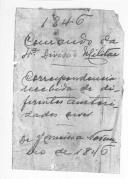 1846
Comando da
Divisão Militar
Correspondencia
recebida de di-
ferentes autori-
dades civis
De Janeiro a
de 1846